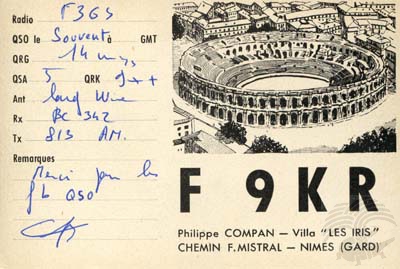 Radio F3GS
QSO le Souvent à GMT
QRG 14
QSA 5 QRK 9++
Ant Long Wire
Rx BC 342
Tx 813 AM.
Remarques
Merci pour les
QSO
F 9KR
Philippe COMPAN — Villa "LES IRIS"
CHEMIN F. MISTRAL — NIMES (GARD)